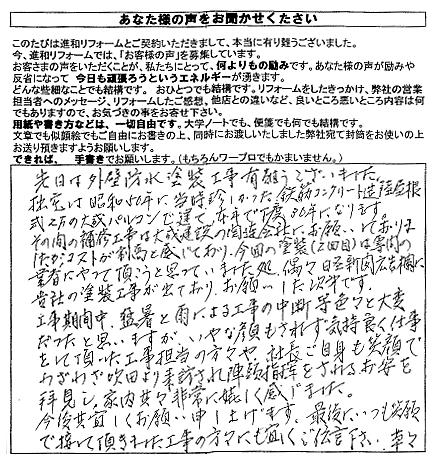 あなた様の声をお聞かせください
このたびは進和リフォームとご契約いただきまして、本当に有り難うございました。
今、進和リフォームでは、「お客様の声」を募集しています。
お客さまの声をいただくことが、私たちにとって、何よりもの励みです。あなた様の声が励みや
反省になって 今日も頑張ろうというエネルギーが湧きます。
どんな些細なことでも結構です。 おひとつでも結構です。リフォームをしたきっかけ、弊社の営業
担当者へのメッセージ、リフォームしたご感想、他店との違いなど、良いところ悪いところ内容は何
でもありますので、お気づきの事をお寄せ下さい。
用紙や書き方などは、一切自由です。大学ノートでも、便箋でも何でも結構です。
文章でも似顔絵でもご自由にお書きの上、同時にお渡しいたしました弊社宛て封筒をお使いの上
お送り頂きますようお願いします。
できれば、 手書きでお願いします。(もちろんワープロでもかまいません。)
先日は外壁防水塗装工事有難うございました。
拙宅は昭和50年に当時珍しかった鉄筋コンクリート造陸屋根
式2Fの大成パルコンで建て、今年で丁度30年になります。
その間の補修工事は大成建設の関連会社にお願いしておりま
したがコストが割高と感じており、今回の塗装(2回目)は専門の
業者にやって頂こうと思っていました処、偶々日経新聞広告欄に
貴社の塗装工事が出ており、お願いした次第です。
工事期間中、猛暑と雨による工事の中断等色々と大変
だったと思いますが、いやな顔もされず気持良く仕事
をして頂いた工事担当の方々や、社長ご自身も笑顔で
わざわざ吹田より来訪され陣頭指揮をされるお姿を
拝見し、家内共々非常に嬉しく感じました。
今後共宜しくお願い申し上げます。最後にいつも笑顔
で接して頂きました工事の方々にも宜しくご伝言下さい。草々